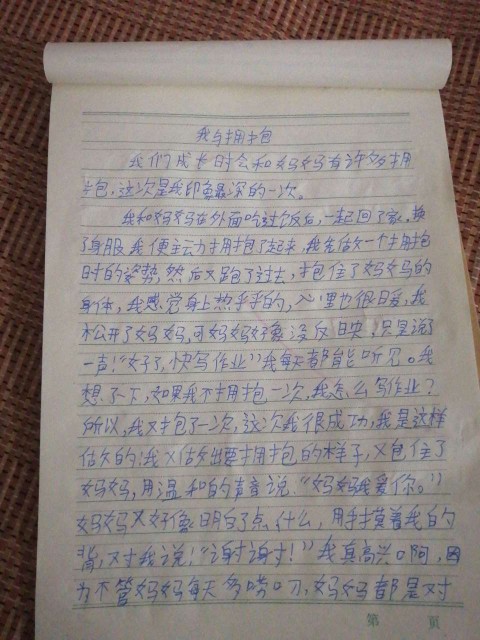 我与拥抱
我们成长时会和妈妈有许多拥
抱,这次是我印象最深的一次。
我和妈妈在外面吃过饭后,一起回了家,换
了身服我便主动拥抱了起来,我先做一个拥抱
时的姿势,然后又跑了过去,抱住了妈妈的
身体,我感觉身上热乎乎的,心里也很暖,我
松开了妈妈,可妈妈好像没反映!只是说了
一声!"好了,快写作业"我每天都能听见。我
想了一下,如果我不拥抱一次,我怎么写作业?
所以,我又抱了一次,这次我很成功,我是这样
做的:我又做出要拥抱的样子,又包住了
妈妈,用温和的声音说:"妈妈我爱你。")
妈妈又好像明白了点什么,用手摸着我的
背,又对我说!"谢谢!"我真高兴啊,因
为不管妈妈每天多唠叨,妈妈都是对
第 页